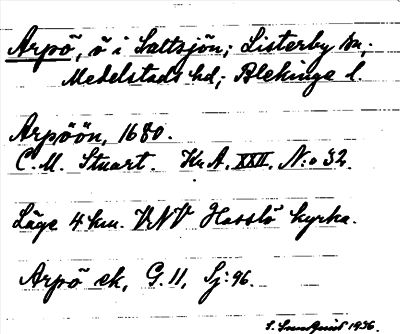 Arpö, ö i Saltsjön; Listerby sn,;
Medelstads hd; Blekinge l.
Arpöön, 1680.
C. M. Stuart. Kr. A. XXII. N:o 32.
Läge 4 km. VNV Hasslö kyrka.
Arpö ek, G. 11, Sj: 96.
1936.